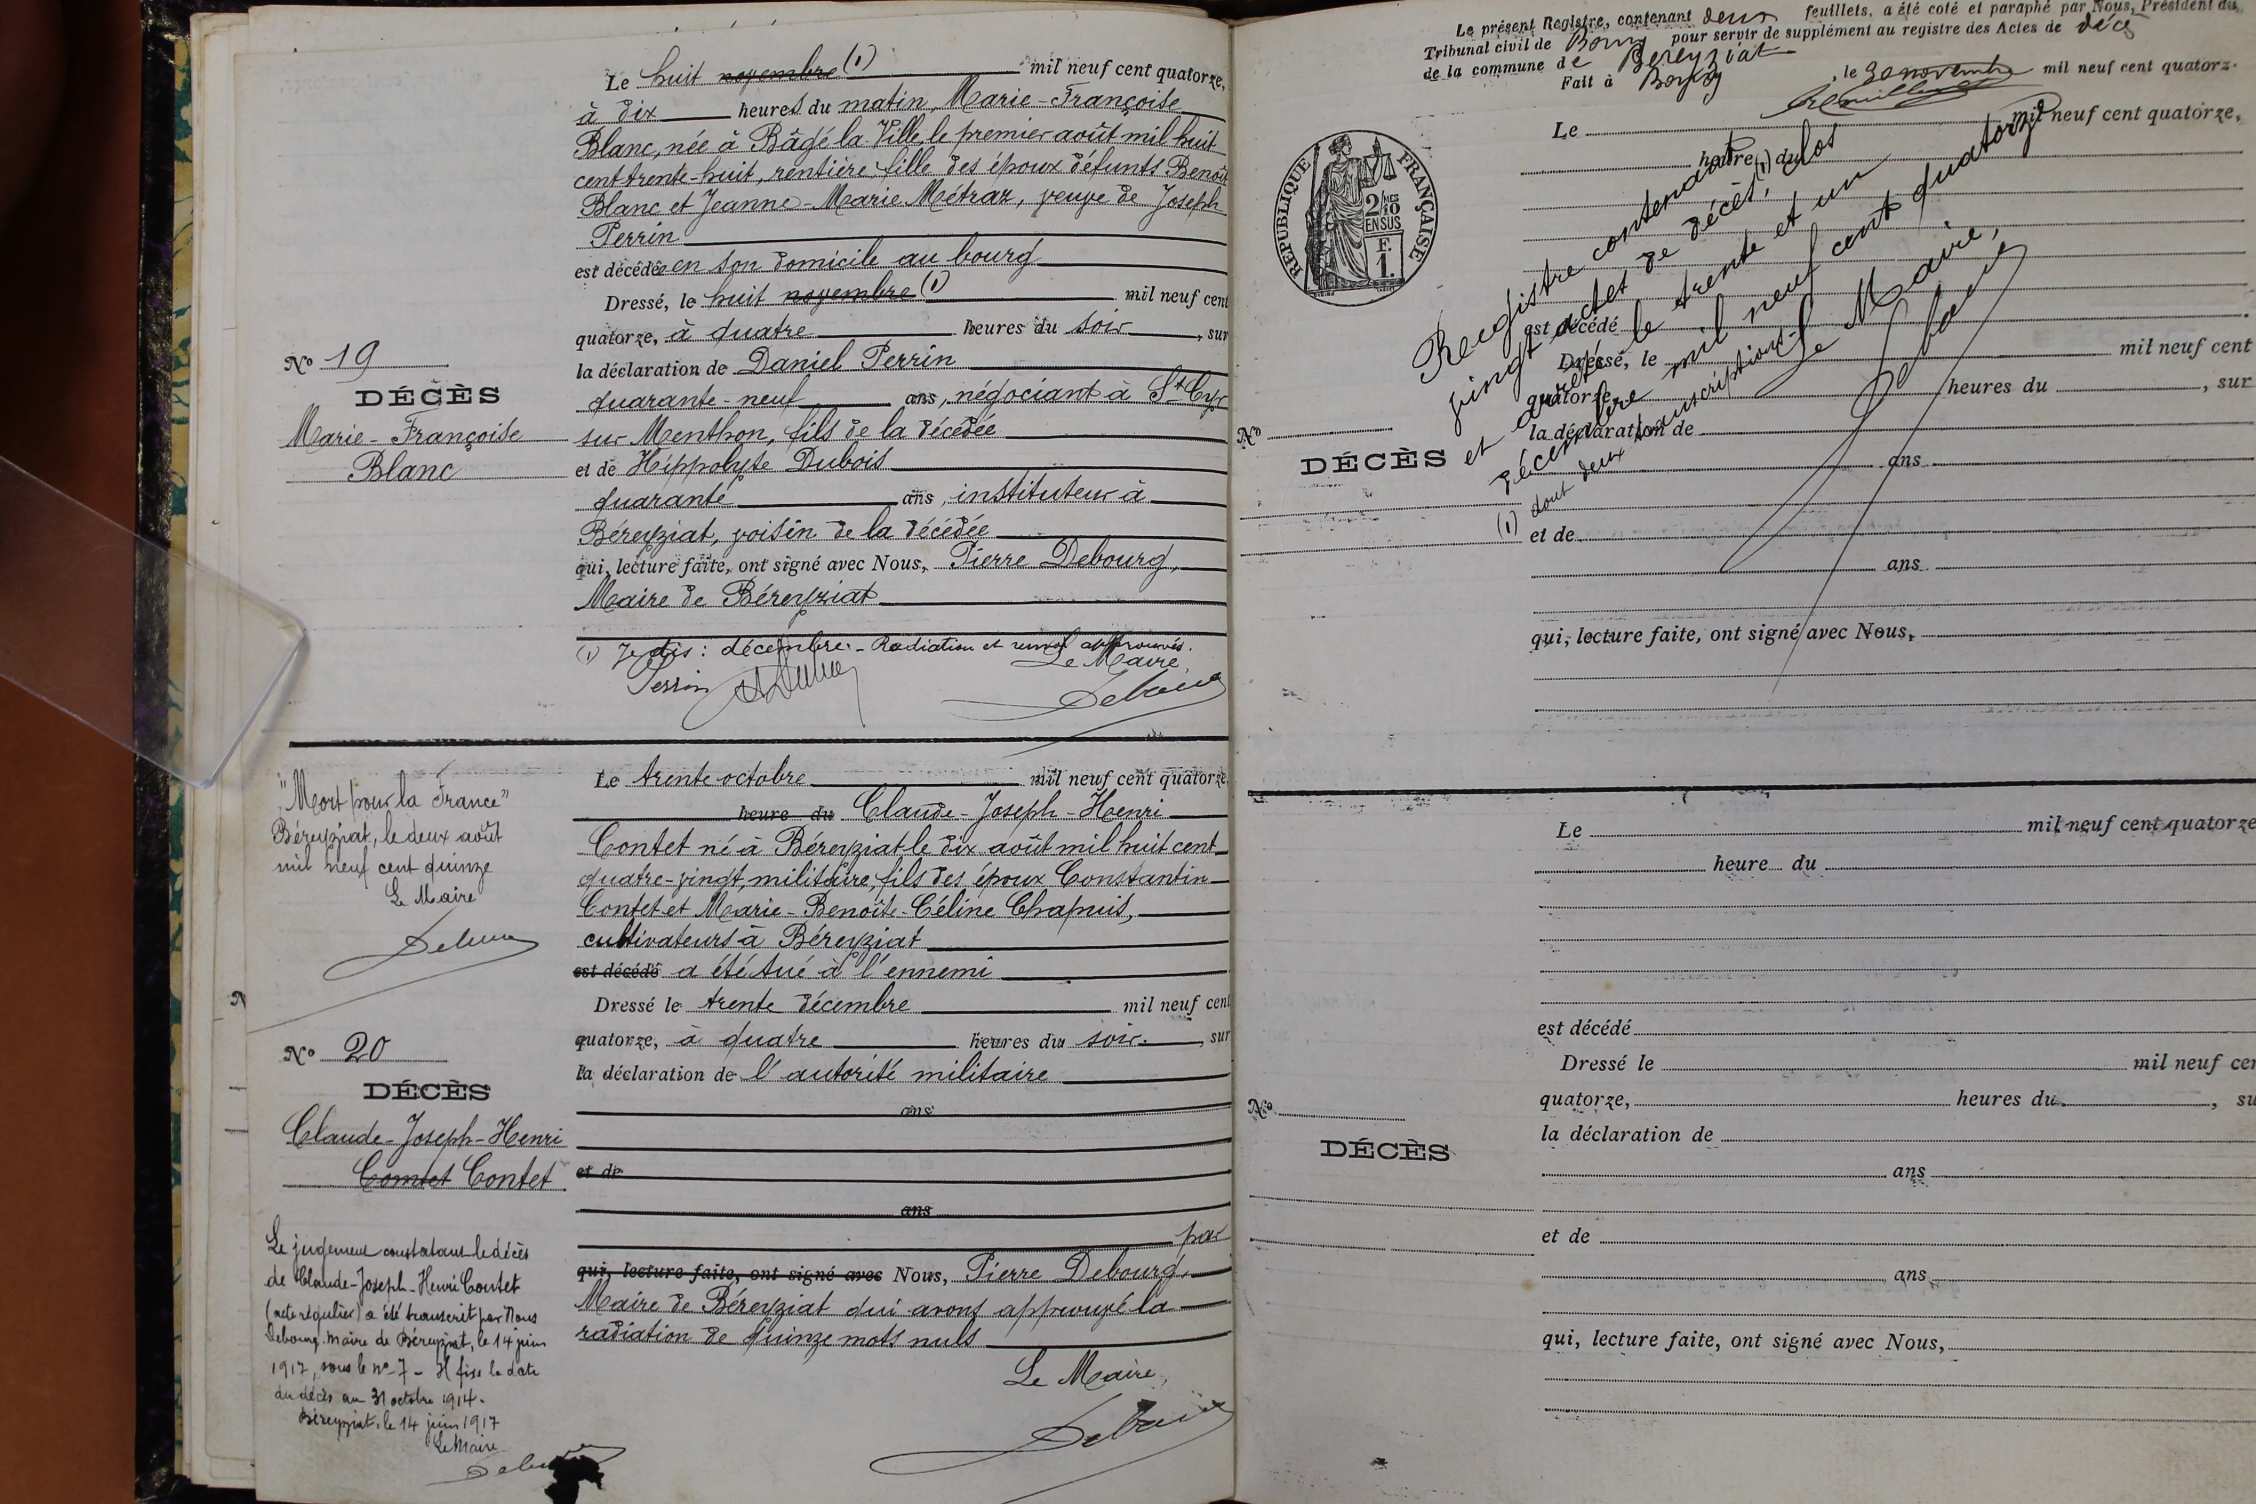 Le huit novembre (1) mil neuf cent quatorze,
à dix heures du matin, Marie-Françoise
Blanc, née à Bâgé la Ville, le premier août mil huit
cent trente-huit, rentière fille des époux défunts Benoît
Blanc et Jeanne-Marie Métraz, veuve de Joseph
Perrin
est décédée en son domicile au bourg
Dressé, le huit novembre (1) mil neuf cent
quatorze, à quatre heures du soir, sur
la déclaration de Daniel Perrin
quarante-neuf ans, négociant à St Cyr
sur Menthon, fils de la décédée
et de Hippolyte Dubois
quarante ans, instituteur à
Béreyziat, voisin de la décédée
qui, lecture faite, ont signé avec Nous, Pierre Debourg,
Maire de Béreyziat
(1) Je dis : décembre - Radiation et renvoi approuvés.
Le Maire,
Perrin
Nº 19
DÉCÈS
Marie-Françoise
Blanc
"Mort pour la France"
Béreyziat, le deux août
mil neuf cent quinze
Le Maire
Nº 20
DÉCÈS
Claude-Joseph-Henri
Comtet Contet
Le jugement constatant le décès
de Claude-Joseph-Henri Contet
(acte régulier) a été transcrit par Nous
Debourg Maire de Béreyziat, le 14 juin
1917, sous le nº 7 - Il fixe la date
du décès au 31 octobre 1914.
Béreyziat, le 14 juin 1917
Le Maire
Le trente octobre mil neuf cent quatorze
heure du Claude-Joseph-Henri
Contet né à Béreyziat le dix août mil huit cent
quatre-vingt, militaire, fils des époux Constantin
Contet et Marie-Benoîte-Céline Chapuis,
cultivateurs à Béreyziat
est décédé a été tué à l'ennemi
Dressé le trente décembre mil neuf cent
quatorze, à quatre heures du soir, sur
la déclaration de l'autorité militaire
ans
et de
ans
par
qui, lecture faite, ont signé avec Nous, Pierre Debourg,
Maire de Béreyziat qui avons approuvé la
radiation de quinze mots nuls
Le Maire,
Le présent Registre, contenant deux feuillets, a été coté et paraphé par Nous, Président du
Tribunal civil de Bourg pour servir de supplément au registre des Actes de décès
de la commune de Béreyziat
Fait à Bourg, le 30 novembre mil neuf cent quatorz
RÉPUBLIQUE FRANÇAISE
2/10
EN SUS
F.
1.
Registre contenant
vingt actes de décès,(1) clos
et arrêté le trente et un
décembre mil neuf cent quatorze
Le Maire,
(1) dont deux transcriptions
Le mil neuf cent quatorze,
heure du
est décédé
Dressé, le mil neuf cent
quatorze, heures du, sur
la déclaration de
Nº
DÉCÈS
ans
et de
ans
qui, lecture faite, ont signé avec Nous,
Le mil neuf cent quatorze
heure du
est décédé
Dressé le mil neuf cen
quatorze, heures du, su
la déclaration de
Nº
DÉCÈS
ans
et de
ans
qui, lecture faite, ont signé avec Nous,